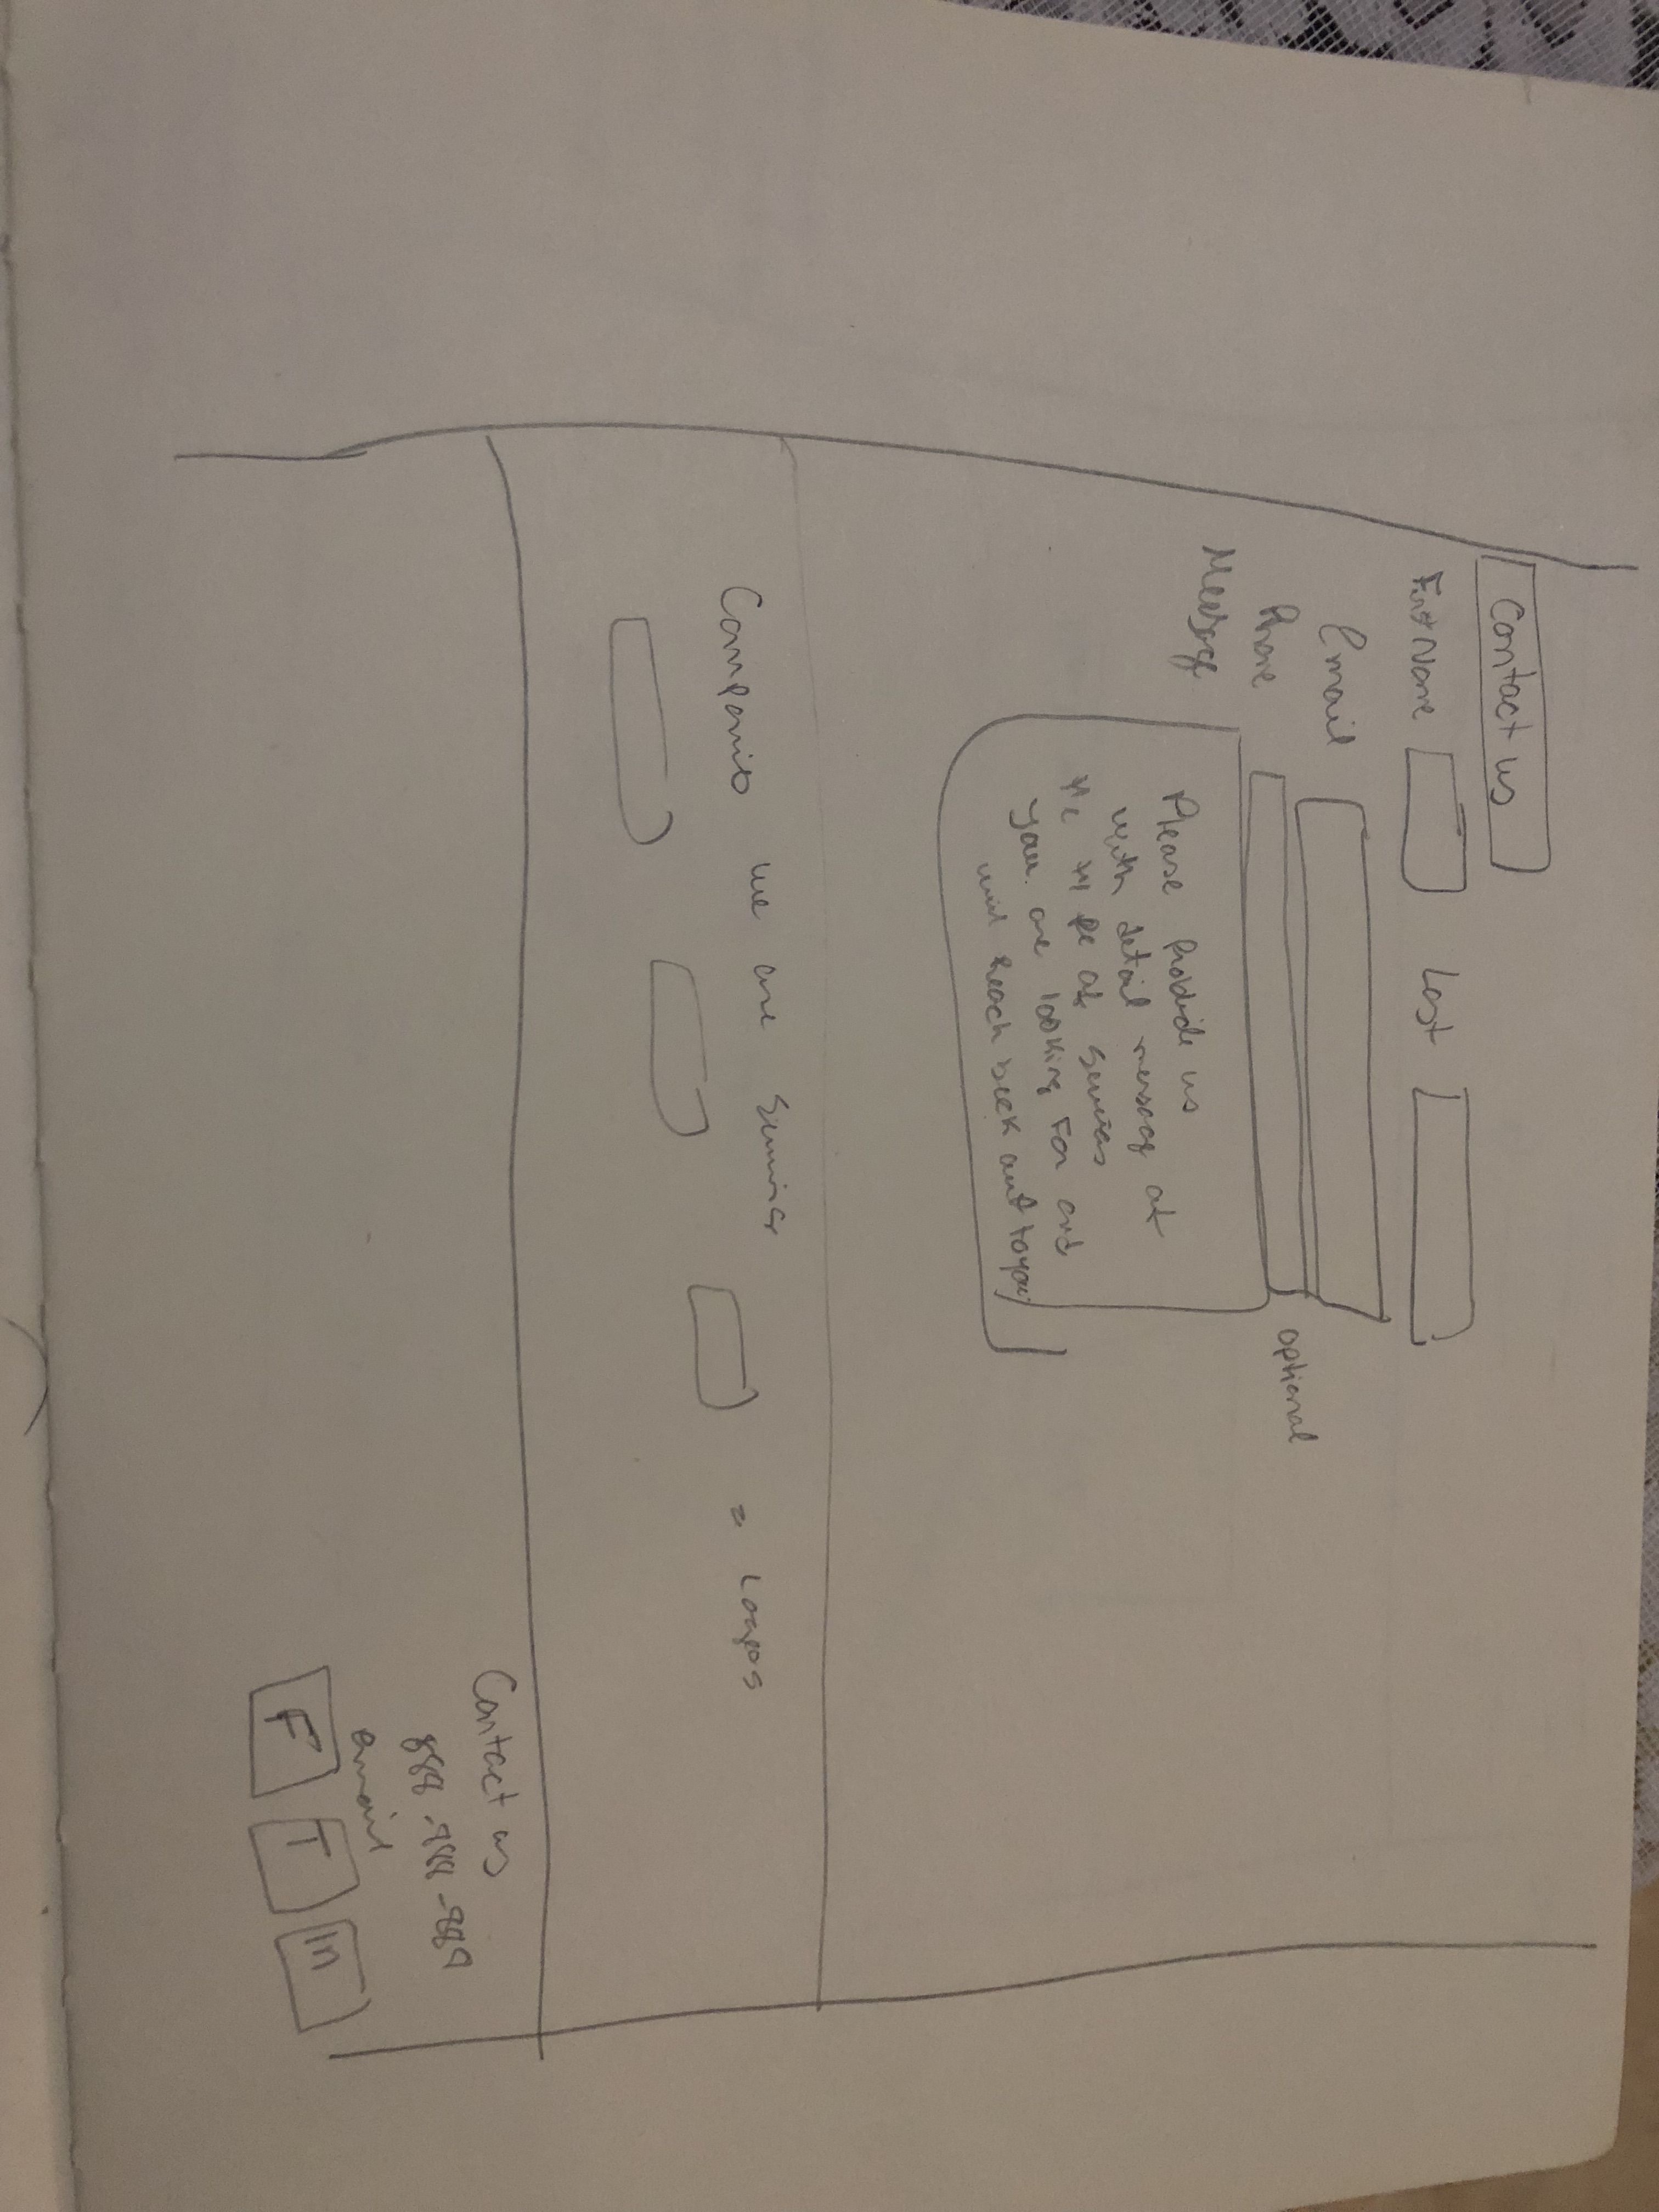 Contact us
First Name
Last
Email
Phone
optional
Message
Please provide us
with detail message of
the of services
you are looking for and
will reach back out to you
Companies we are Service
= Logos
Contact us
email
F T In